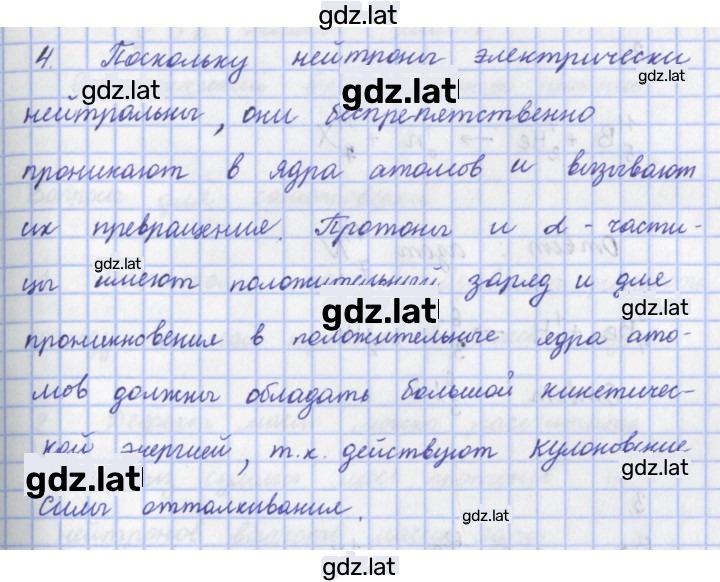 gdz.lat
4. Поскольку нейтроны электрически
gdz.lat
gdz.lat
нейтральны, они беспрепятственно
проникают в ядра атомов и вызывают
их превращения. Протоны и α - части-
gdz.lat
цы имеют положительный заряд и для
gdz.lat
gdz.lat
проникновения в положительные ядра ато-
мов должны обладать большой кинетичес-
кой энергией, т.к. действуют кулоновские
gdz.lat
gdz.lat
силы отталкивания.
gdz.lat
gdz.lat